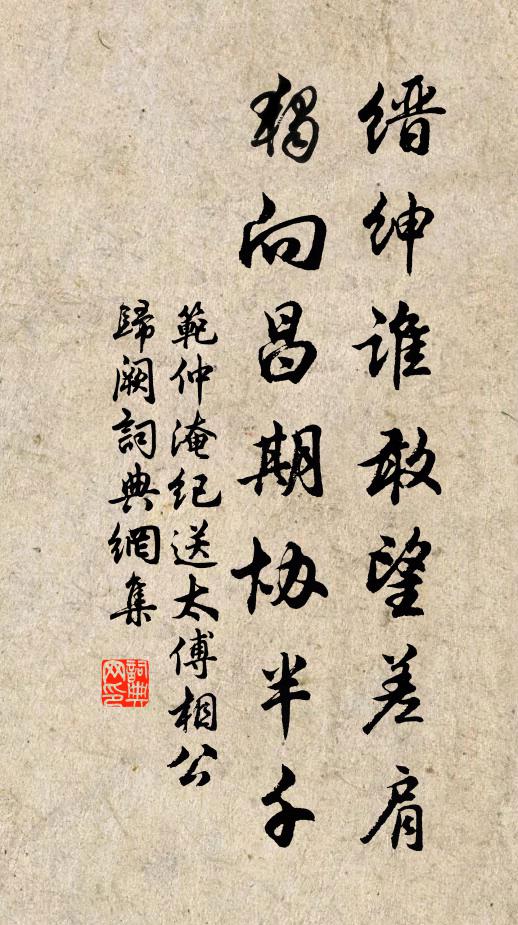 缙绅谁敢望差肩
独向昌期协半千
範仲淹纪送太傅相公
歸阙詞典網集
詞典网印